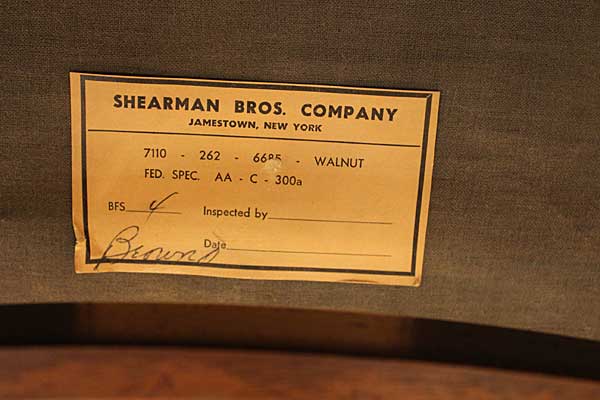 SHEARMAN BROS. COMPANY
JAMESTOWN, NEW YORK
7110 - 262 - 6685 - WALNUT
FED. SPEC. AA - C - 300a
BFS 4 Inspected by
Brown Date